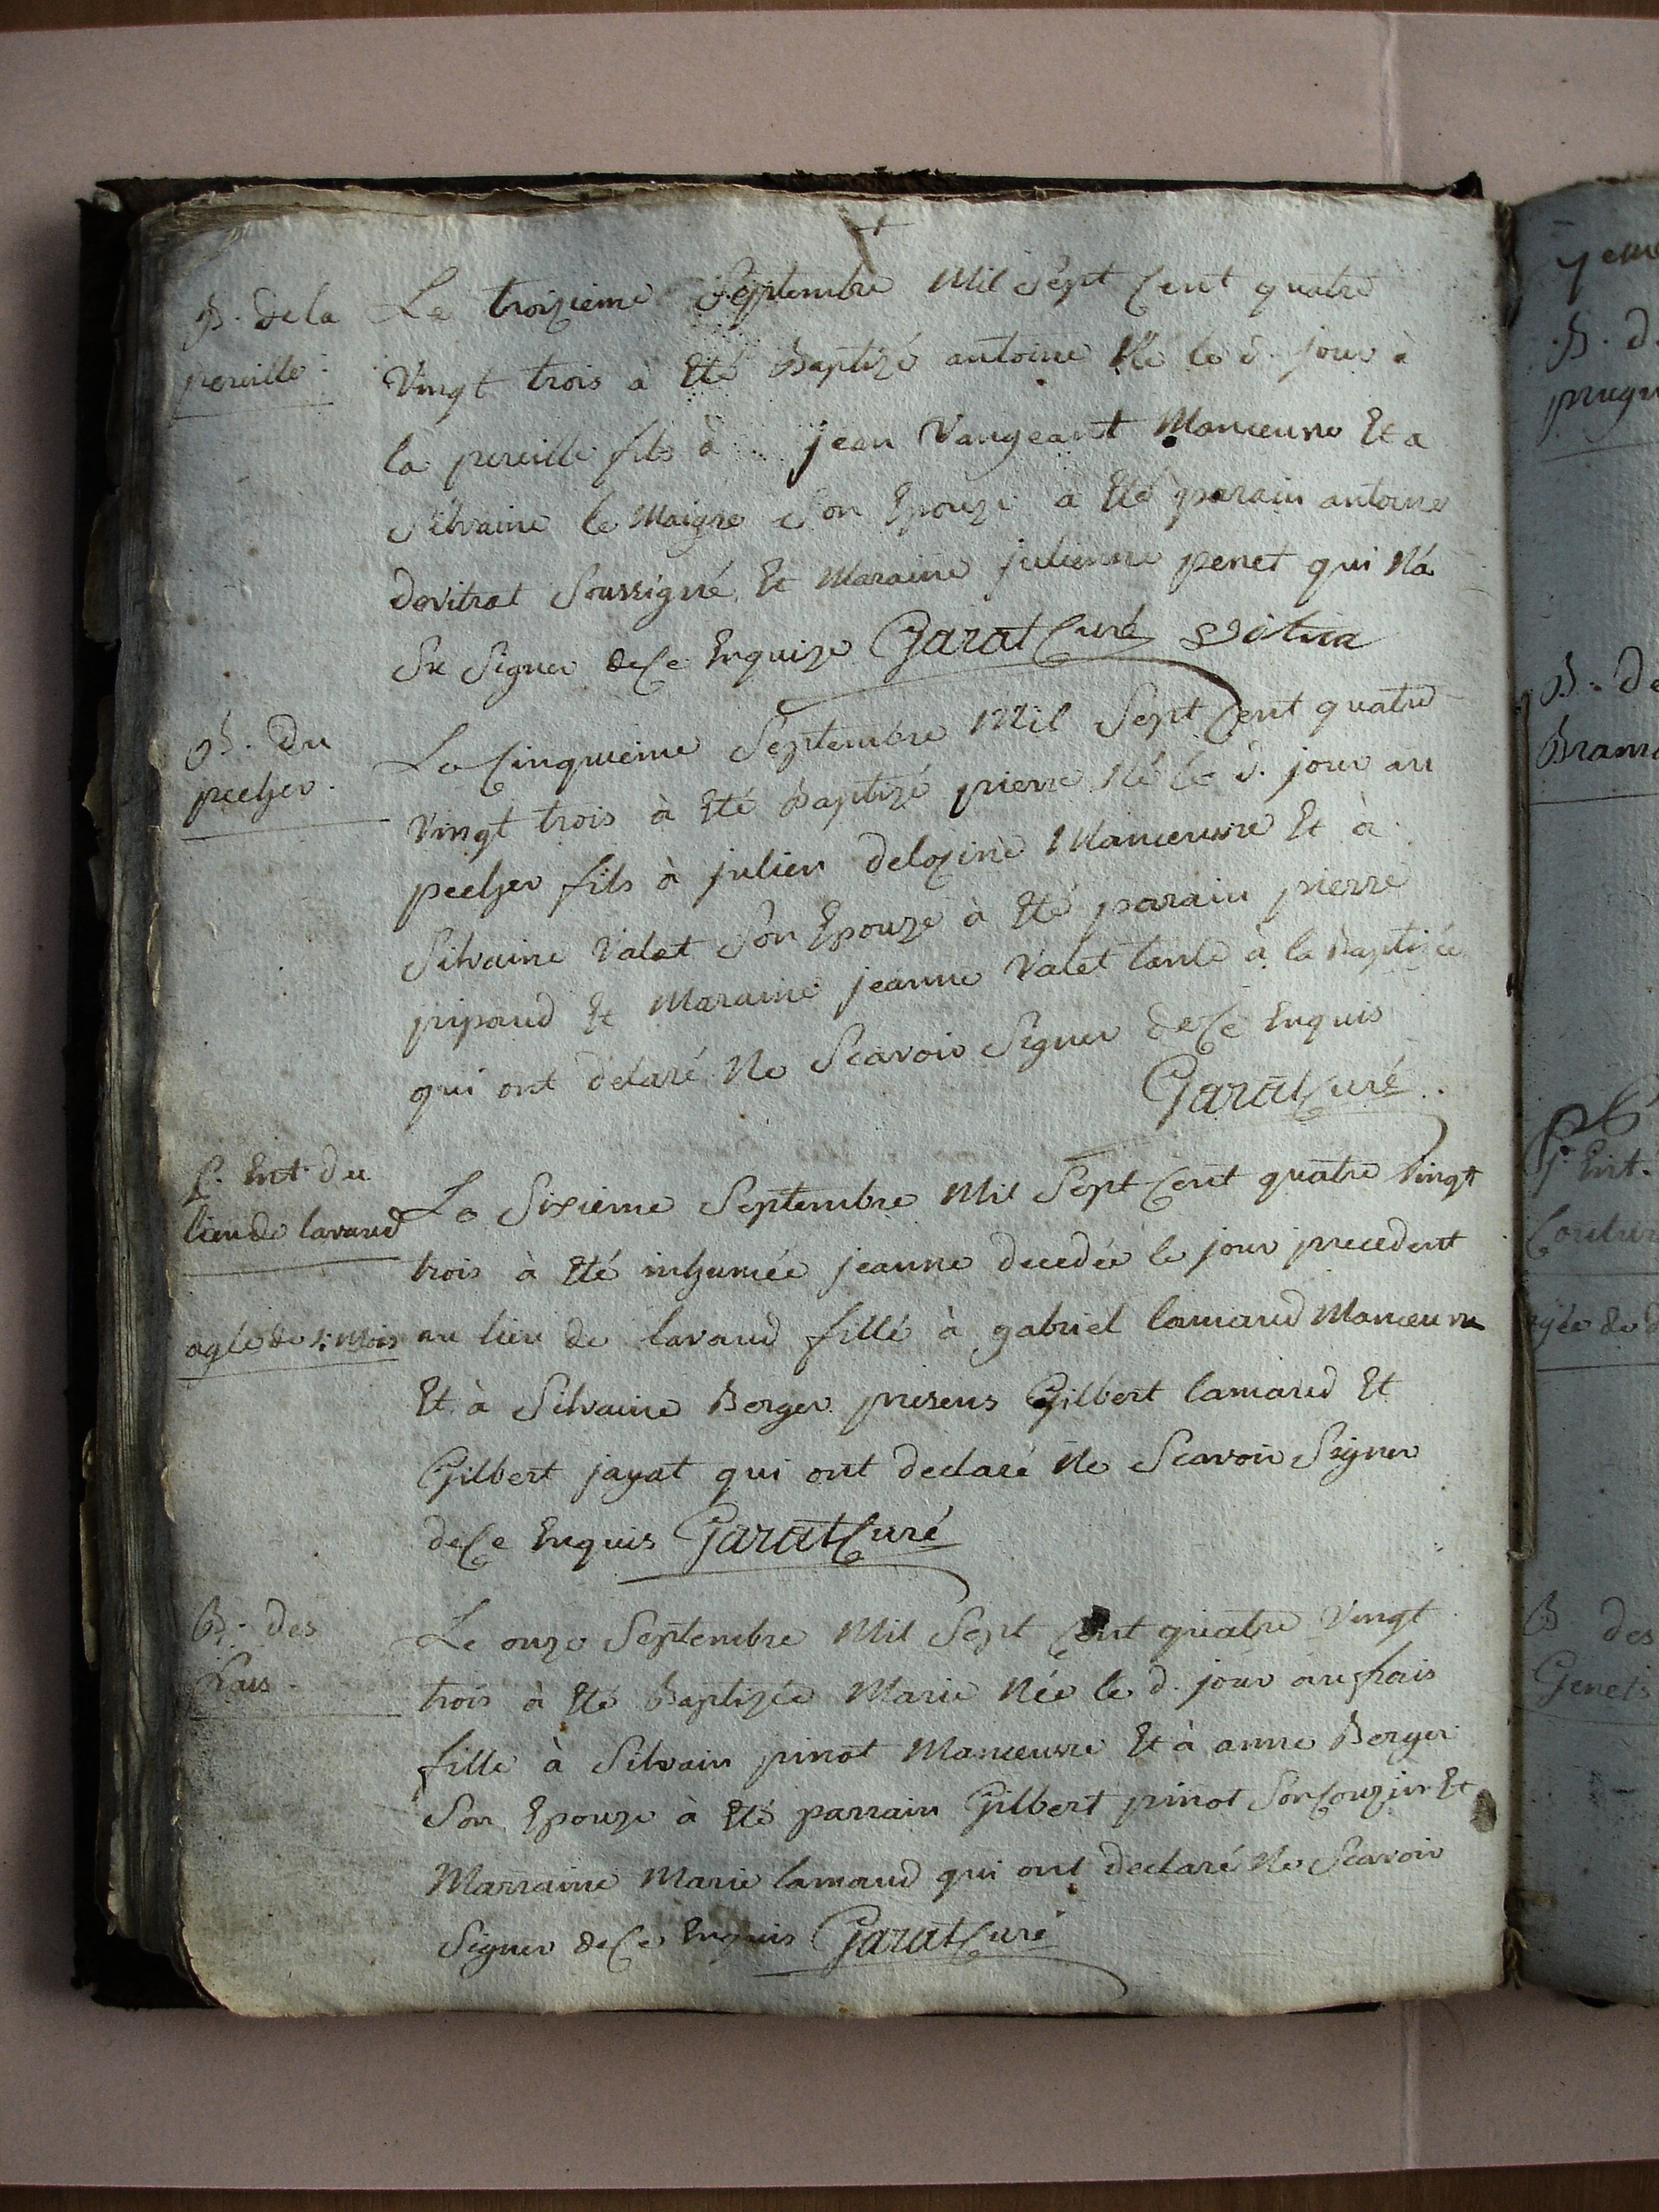 B. de la
pereille.
Le troizieme Septembre Mil Sept Cent quatre
Vingt trois à Eté Baptizé antoine Né le d. jour à
la pereille fils à jean Vangeant Manœuvre Et a
Silvaine le Maigre Son Epouze a Eté parain antoine
devitrat Soussigné Et Maraine julienne penet qui Na
Su Signer de Ce Enquize Garat Curé
B. du
pecher.
Le Cinquieme Septembre Mil Sept Cent quatre
Vingt trois à Eté Baptizé pierre Né le d. jour au
pecher fils à julien delozine Manœuvre Et à
Silvaine Valet Son Epouze à Eté parain pierre
pipaud Et Maraine jeanne Valet tante à la Baptizée
qui ont delaré Ne Scavoir Signer de Ce Enquis
Garat Curé.
Ent. du
lieu de lavaud
agée de Mois
Le Sixieme Septembre Mil Sept Cent quatre Vingt
trois à Eté inhumée jeanne decedée le jour precedent
au lieu de lavaud fille à gabriel lamaud Manœuvre
Et à Silvaine Berger presens Gilbert lamaud Et
Gilbert jayat qui ont declaré Ne Scavoir Signer
de Ce Enquis Garat Curé
B. des
Le onze Septembre Mil Sept Cent quatre Vingt
trois à Eté Baptizée Marie Née le d. jour aux
fille à Silvain pinot Manœuvre Et à anne Berger
Son Epouze à Eté parrain Gilbert pinot Son Couzin Et
Marraine Marie lamaud qui ont declaré Ne Scavoir
Signer de Ce Enquis Garat Curé
B. d
B. de
Ent.
B des
Genets